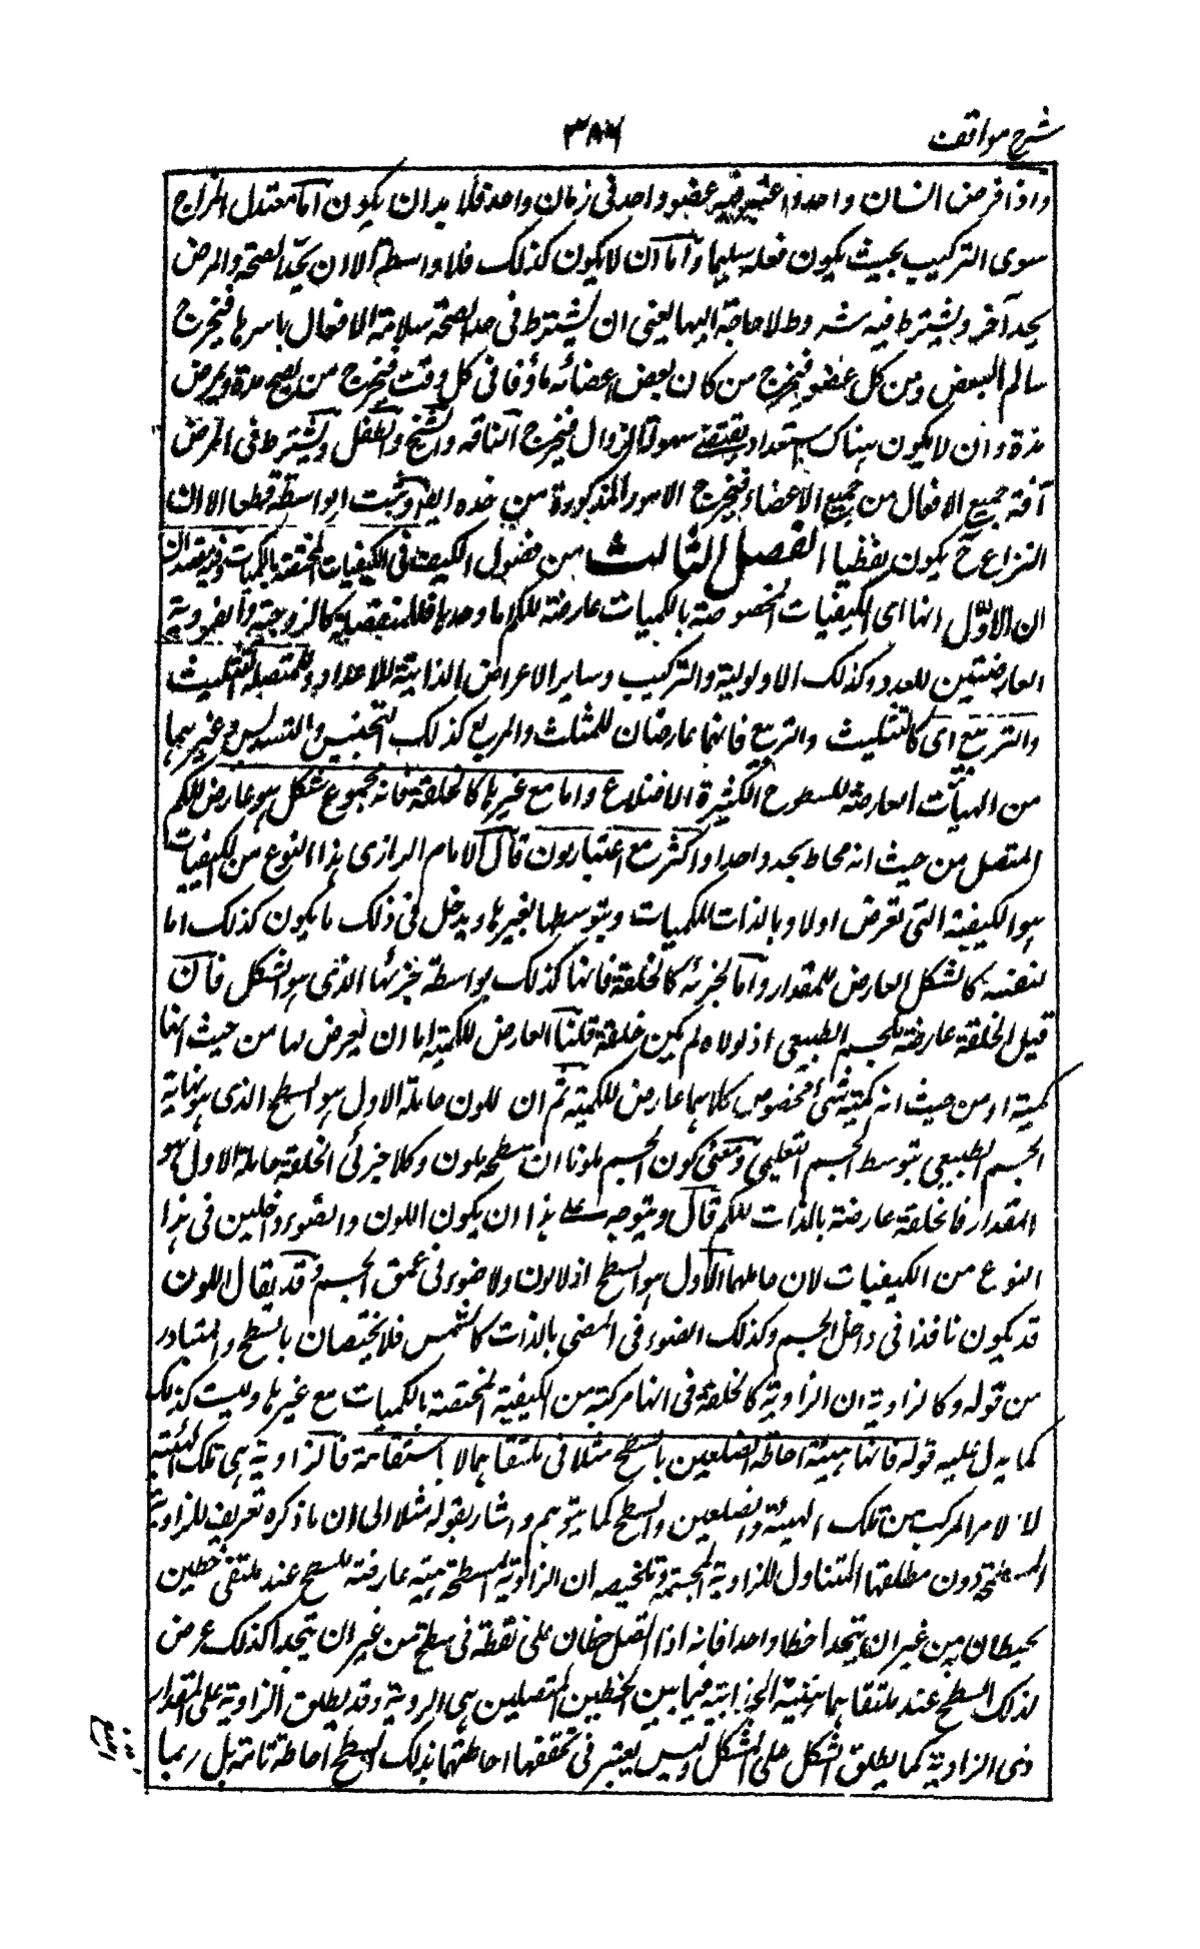 شرح مواقف
٣٨٦
واذا فرض انسان واحد واعتبر فيه عضو واحد فى زمان واحد فلا بد ان يكون اما معتدل المزاج
سوى التركيب بحيث يكون فعله سليما واما ان لا يكون كذلك فلا واسطة الا ان يحد الصحة والمرض
بحد آخر ويشترط فيه شروط لا حاجة اليها يعنى ان يشترط فى حد الصحة سلامة الافعال باسرها فيخرج
سالم البعض ومن كل عضو فيخرج من كان بعض اعضائه مأوفا فى كل وقت فيخرج من يصح مدة ويمرض
مدة وان لا يكون هناك استعداد يقتضى سهولة الزوال فيخرج الناقه والشيخ والطفل ويشترط فى المرض
آفة جميع الافعال من جميع الاعضاء فيخرج الامور المذكورة من حده ايضا وثبت الواسطة قطعا الا ان
النزاع ح يكون لفظيا الفصل الثالث من فصول الكيف فى الكيفيات المختصة بالكميات وفيه مقصدان
ان الاول انها اى الكيفيات المخصوصة بالكميات عارضة للكم اما وحدها فللمنفصل كالزوجية والفردية
العارضتين للعدد وكذلك الاولولية والتركيب وساير الاعراض الذاتية للاعداد وللمتصلة كالتثليث
والتربيع اى كالتثليث والتربيع فانهما عارضان للمثلث والمربع كذلك التخميس والتسديس وغيرهما
من الهيأت العارضة للسطوح الكثيرة الاضلاع واما مع غيرها كالخلقة فانه مجموع شكل هو عارض للكم
المتصل من حيث انه محاط بحد واحد او اكثر مع اعتبار لون قال الامام الرازى هذا النوع من الكيفيات
هو الكيفية التى تعرض اولا وبالذات للكميات وبتوسطها لغيرها ويدخل فى ذلك ما يكون كذلك اما
لنفسه كالشكل العارض للمقدار واما لجزئه كالخلقة فانها كذلك بواسطة جزئها الذى هو الشكل فان
قيل الخلقة عارضة للجسم الطبيعى اذ لولاه لم يكن خلقة قلنا العارض للكمية اما ان يعرض لها من حيث انها
كمية او من حيث انه كمية شئ مخصوص كلاهما عارض للكمية ثم ان للون حامله الاول هو السطح الذى هو نهاية
الجسم الطبيعى بتوسط الجسم التعليمى ومعنى كون الجسم ملونا ان سطحه ملون وكلا جزئى الخلقة حامله الاول هو
المقدار فالخلقة عارضة بالذات للكم قال ويتوجه على هذا ان يكون اللون والضوء داخلين فى هذا
النوع من الكيفيات لان حاملهما الاول هو السطح اذ لا لون ولا ضوء فى عمق الجسم وقد يقال اللون
قد يكون نافذا فى داخل الجسم وكذلك الضوء فى المضى بالذات كالشمس فلا يختصان بالسطح والمتبادر
من قوله وكالزاوية ان الزاوية كالخلقة فى انها مركبة من الكيفية المختصة بالكميات مع غيرها وليست كذلك
كما يدل عليه قوله فانها هيئة احاطة الضلعين بالسطح مثلا فى ملتقاهما لا باستقامة فالزاوية هى تلك الهيئة
لا الامر المركب من تلك الهيئة والضلعين والسطح كما يتوهم واشار بقوله مثلا الى ان ما ذكره تعريف للزاوية
المسطحة دون مطلقها المتناول للزاوية المجسمة وتلخيصه ان الزاوية المسطحة هيئة عارضة للسطح عند ملتقى خطين
يحيطان به من غير ان يتحدا خطا واحدا فانه اذا اتصل خطان على نقطة فى سطح من غير ان يتحدا كذلك عرض
لذلك السطح عند ملتقاهما هيئة فيما بين الخطين المتصلين هى الزاوية وقد يطلق الزاوية على المقدار
ذى الزاوية كما يطلق الشكل على المشكل وليس يعتبر فى تحققها احاطتهما بذلك السطح احاطة تامة بل ربما